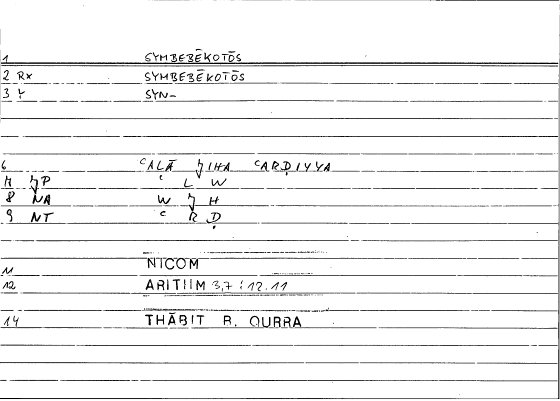 1 SYMBEBĒKOTŌS
2 Rx SYMBEBĒKOTŌS
3 Y SYN-
6 ᶜALĀ ǦIHA ᶜARḌIYYA
7 ǦP ᶜ L W
8 NA W Ǧ H
9 NT ᶜ R Ḍ
11 NICOM
12 ARITHM 3,7 : 12.11
14 THĀBIT B. QURRA